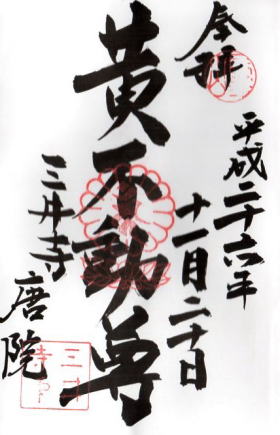 奉拝
平成二十六年
十一月二十日
黄不動尊
三井寺
唐院
三井
寺印